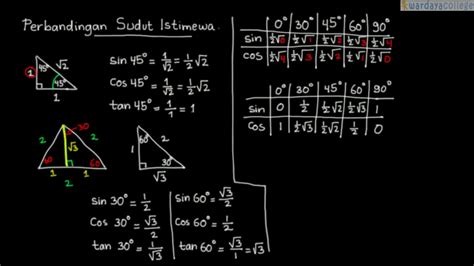 wardayacollege
Perbandingan Sudut Istimewa.
1 45° √2 45° 1
sin 45° = 1/√2 = ½√2
cos 45° = 1/√2 = ½√2
tan 45° = 1/1 = 1
30 2 2 √3 60 60 1 1 2
60° 2 1 30° √3
sin 30° = 1/2
cos 30° = √3/2
tan 30° = 1/√3
sin 60° = √3/2
cos 60° = 1/2
tan 60° = √3/1 = √3
0° 30° 45° 60° 90°
sin ½√0 ½√1 ½√2 ½√3 ½√4
cos ½√4 ½√3 ½√2 ½√1 ½√0
0° 30° 45° 60° 90°
sin 0 ½ ½√2 ½√3 1
cos 1 ½√3 ½√2 ½ 0